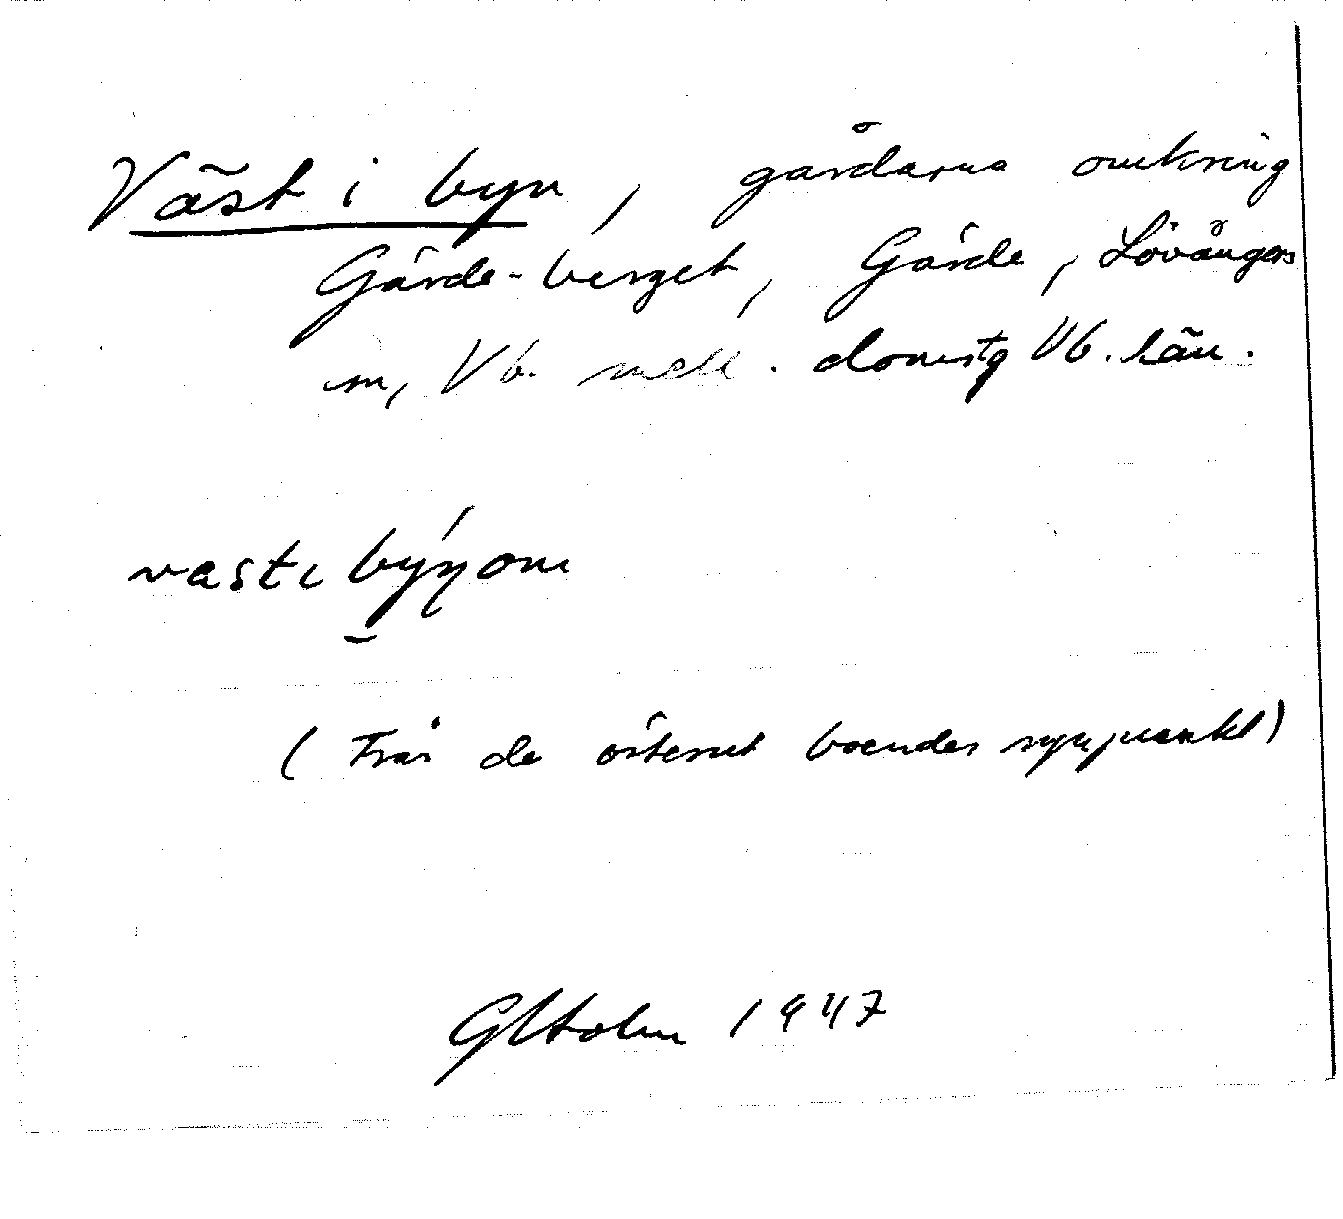 Väst i byn, gårdarna omkring
Gärde-berget, Gärde, Lövångers
sn, Vb. mell. domstg Vb. län.
väst ı býnom
(Från de österut boendes synpunkt)
GHolm 1947